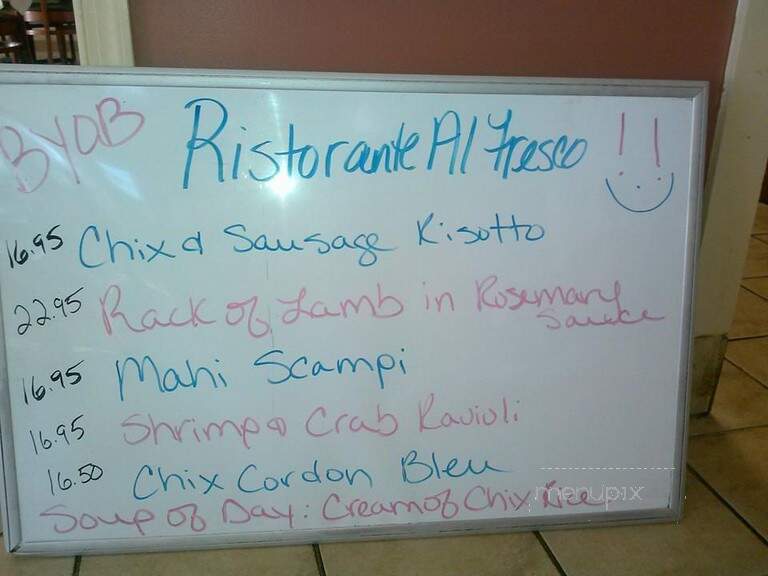 BYOB Ristorante Al Fresco !!
16.95 Chix & Sausage Risotto
22.95 Rack of Lamb in Rosemary
Sauce
16.95 Mahi Scampi
16.95 Shrimp & Crab Ravioli
16.50 Chix Cordon Bleu
Soup of Day: Cream of Chix Rice
menupix